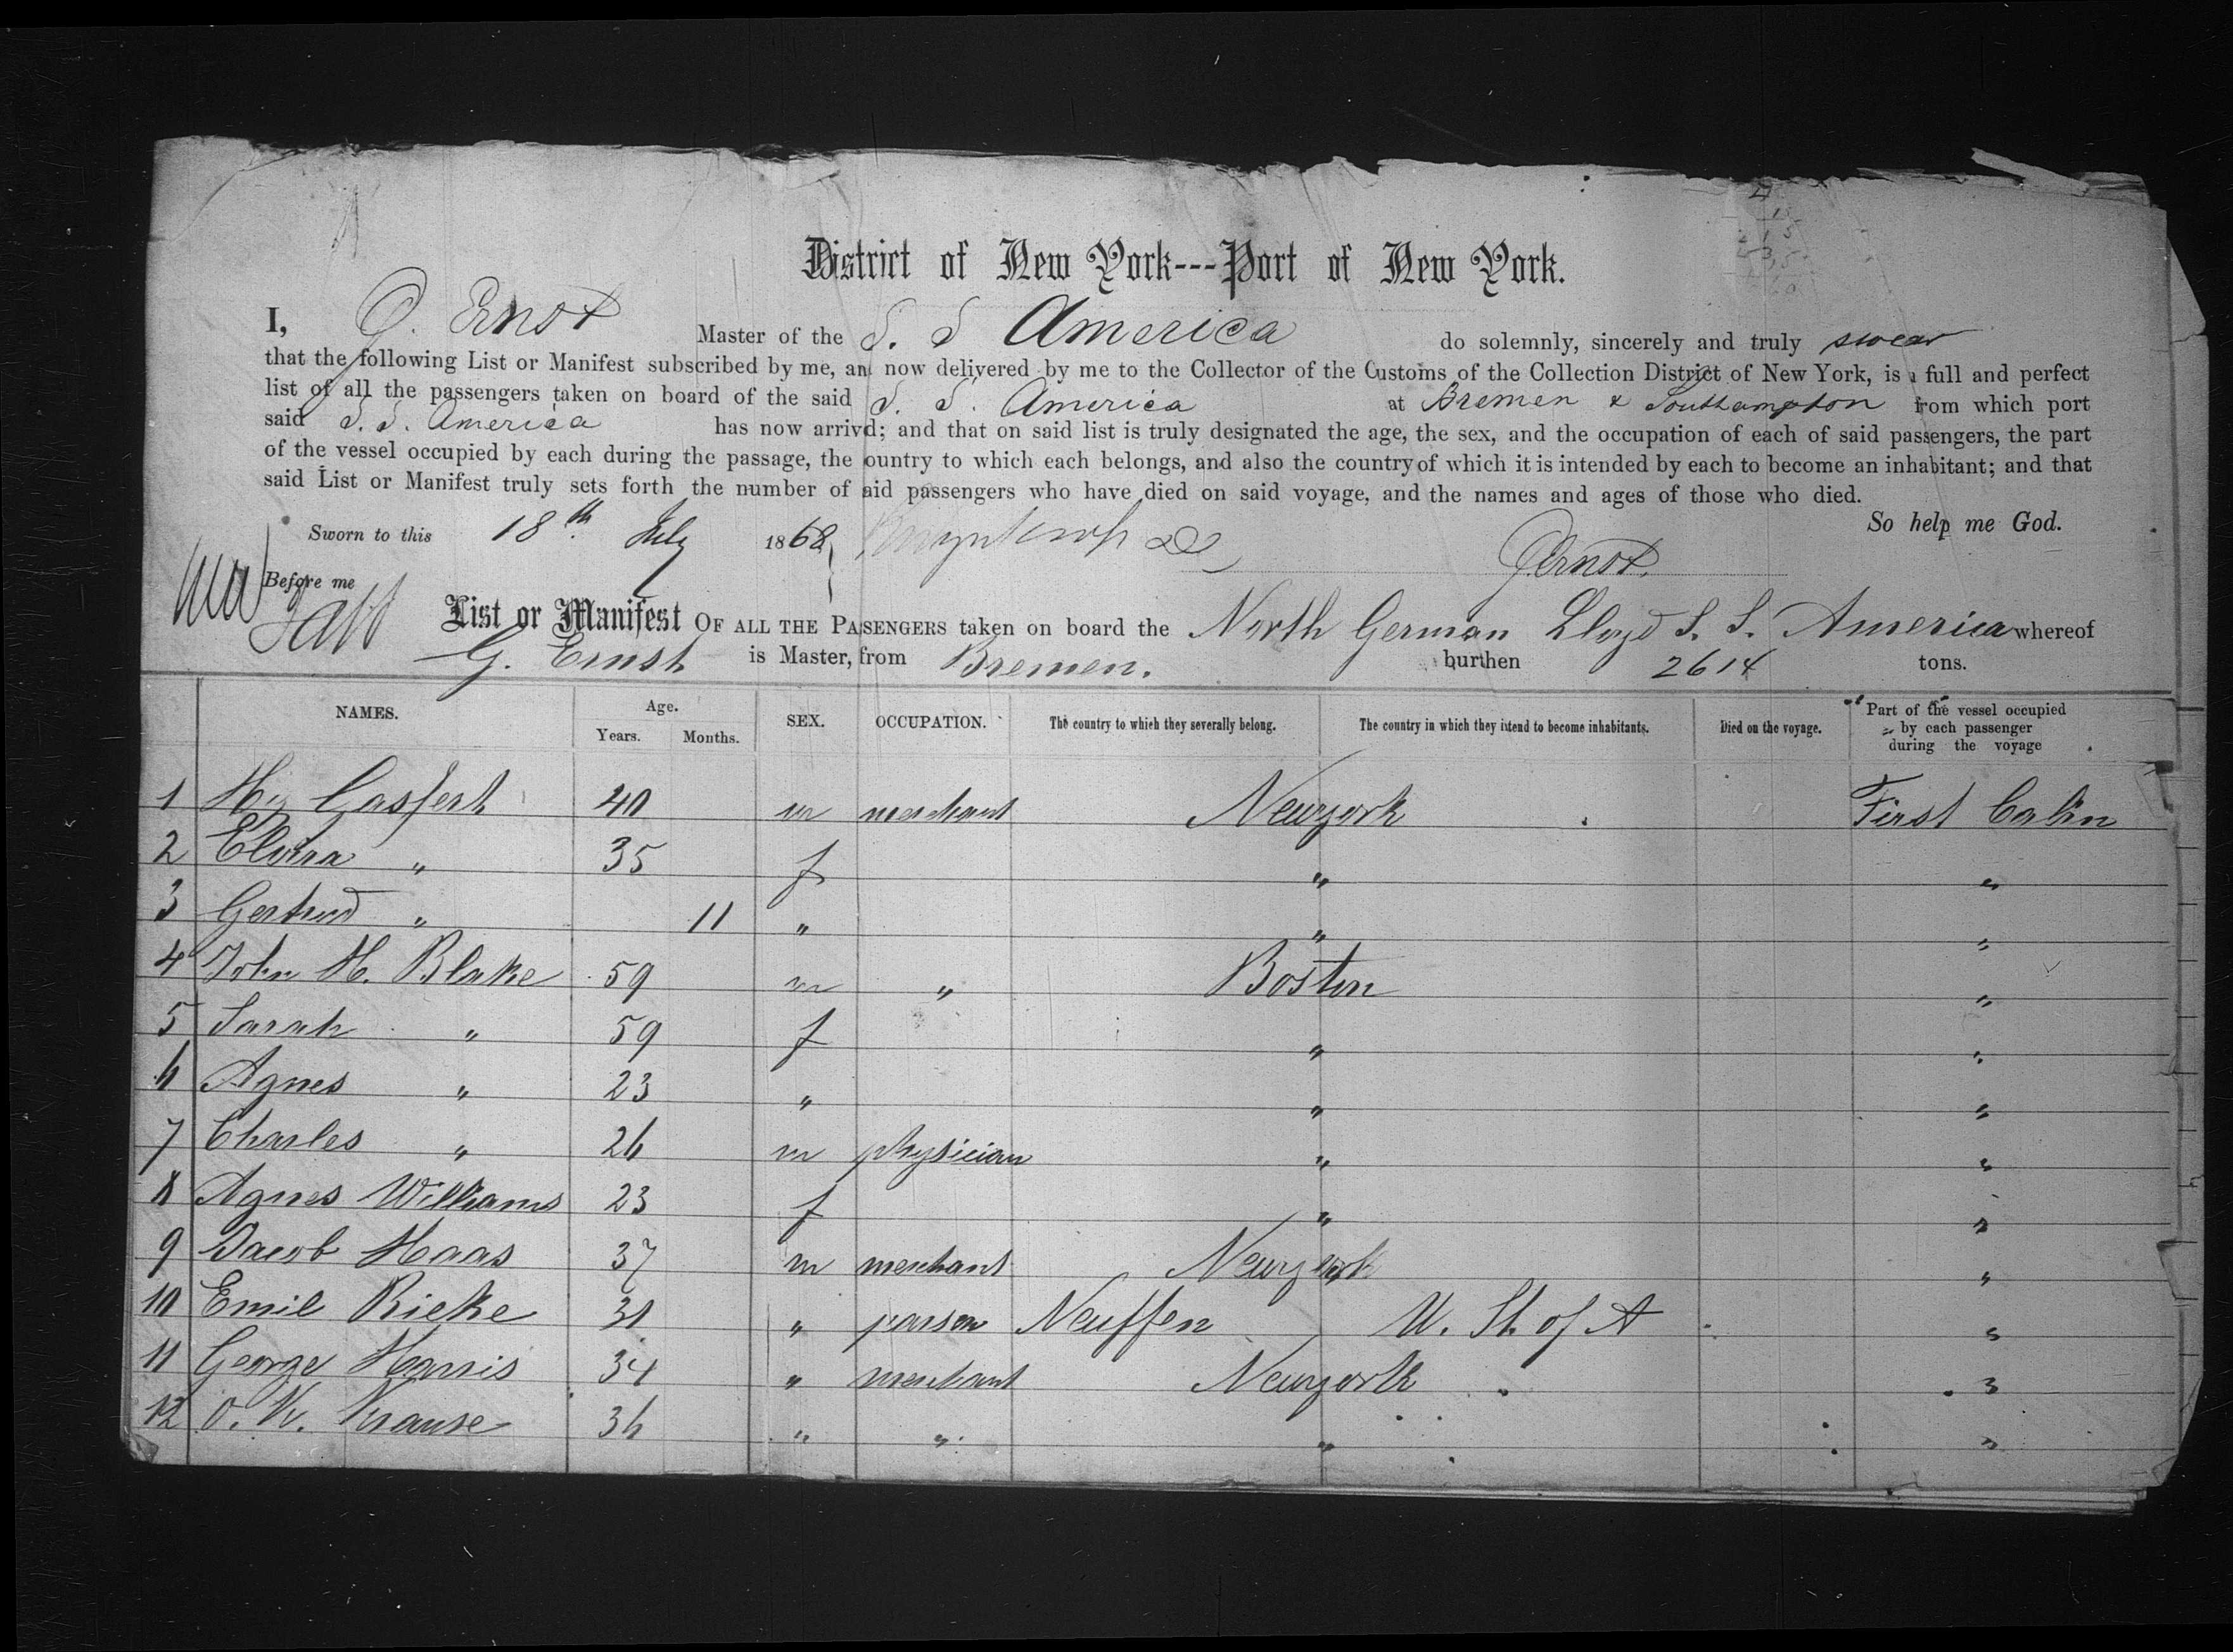 District of New York---Port of New York.
I, G. Ernst Master of the S. S America do solemnly, sincerely and truly swear
that the following List or Manifest subscribed by me, an now delivered by me to the Collector of the Customs of the Collection District of New York, is a full and perfect
list of all the passengers taken on board of the said S. S. America at Bremen & Southampton from which port
said S. S. America has now arrivd; and that on said list is truly designated the age, the sex, and the occupation of each of said passengers, the part
of the vessel occupied by each during the passage, the ountry to which each belongs, and also the country of which it is intended by each to become an inhabitant; and that
said List or Manifest truly sets forth the number of aid passengers who have died on said voyage, and the names and ages of those who died.
So help me God.
Sworn to this 18th July 1868
G Ernst
Before me
List or Manifest OF ALL THE PASENGERS taken on board the North German Lloyd S. S. America whereof
G. Ernst is Master, from Bremen. burthen 2614 tons.
NAMES. Age. Years. Months. SEX. OCCUPATION. The country to which they severally belong. The country in which they intend to become inhabitants. Died on the voyage. Part of the vessel occupied by each passenger during the voyage
1 Hy 40 m merchant Newyork First Cabin
2 Elvira " 35 f " "
3 Gertrud " 11 " " "
4 John H. Blake 59 m " Boston "
5 Sarah " 59 f " "
6 Agnes " 23 " " "
7 Charles " 26 m physician " "
8 Agnes Williams 23 f " "
9 Jacob Haas 37 m merchant Newyork "
10 Emil Rieke 30 " parson Neuffen U. St. of A "
11 George Harris 34 " merchant Newyork "
12 O. W. Krause 36 " " " "